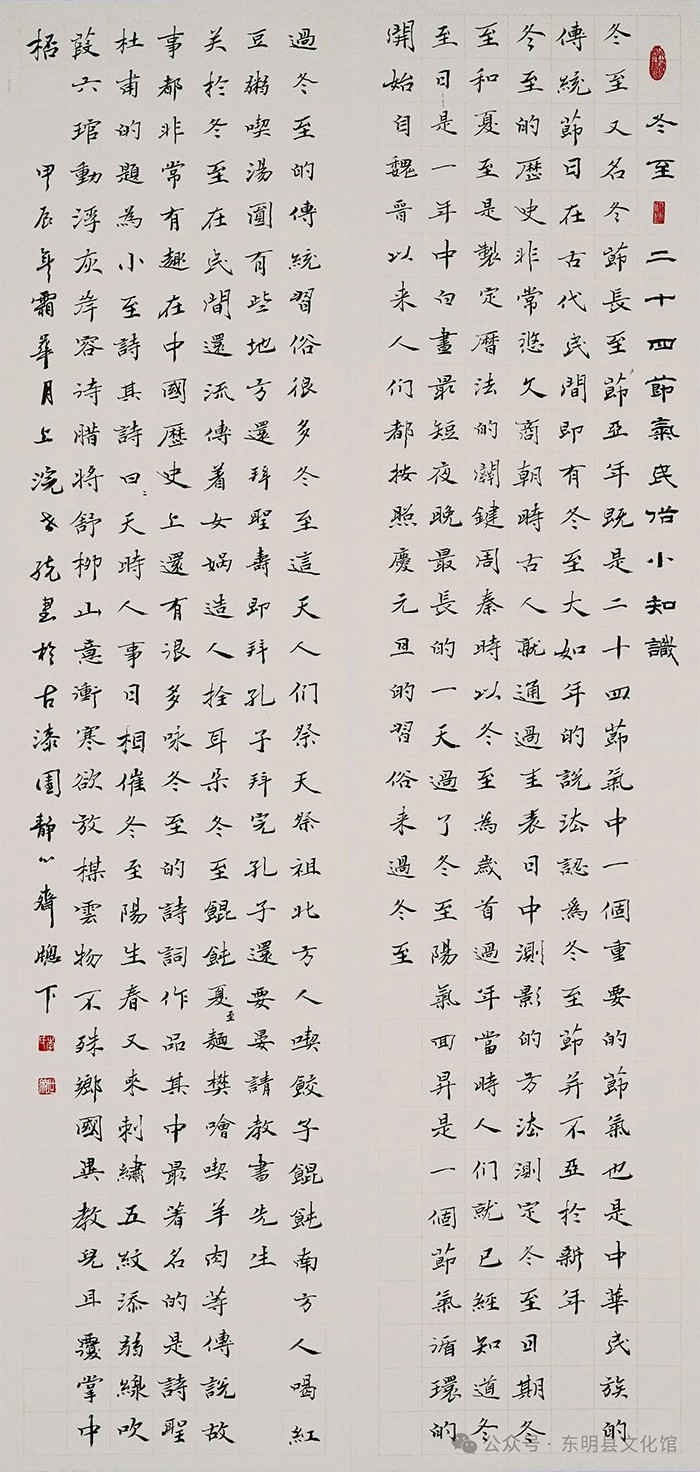 冬至 二十四節氣民俗小知識
冬至又名冬節長至節亞年既是二十四節氣中一個重要的節氣也是中華民族的
傳統節日在古代民間即有冬至大如年的說法認為冬至節并不亞於新年
冬至的歷史非常悠久商朝時古人就通過圭表日中測影的方法測定冬至日期冬
至和夏至是製定曆法的關鍵周秦時以冬至為歲首過年當時人们就已經知道冬
至日是一年中白晝最短夜晚最長的一天過了冬至陽氣回昇是一個節氣循環的
開始自魏晉以来人们都按照慶元旦的習俗来過冬至
過冬至的傳統習俗很多冬至這天人们祭天祭祖北方人喫餃子餛飩南方人喝紅
豆粥喫湯圓有些地方還拜聖壽即拜孔子拜完孔子還要宴請教書先生
关於冬至在民間還流傳着女媧造人拴耳朵冬至餛飩夏至麵樊噲喫羊肉等傳說故
事都非常有趣在中國歷史上還有很多咏冬至的詩詞作品其中最著名的是詩聖
杜甫的題為小至詩其詩曰天時人事日相催冬至陽生春又来刺繡五紋添弱線吹
葭六琯動浮灰岸容待腊將舒柳山意衝寒欲放楳雲物不殊鄉國異教兒且覆掌中
桮 甲辰年霜華月上浣 書於古漆園靜心齋牕下
公众号·东明县文化馆